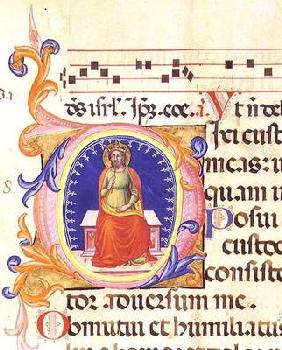 ds isrl. Ips. coe. i Vt n del
Dixi cust
meas: u
quam i
Posui
custo
consiste
tor aduersum me.
Obmutui et humiliatus